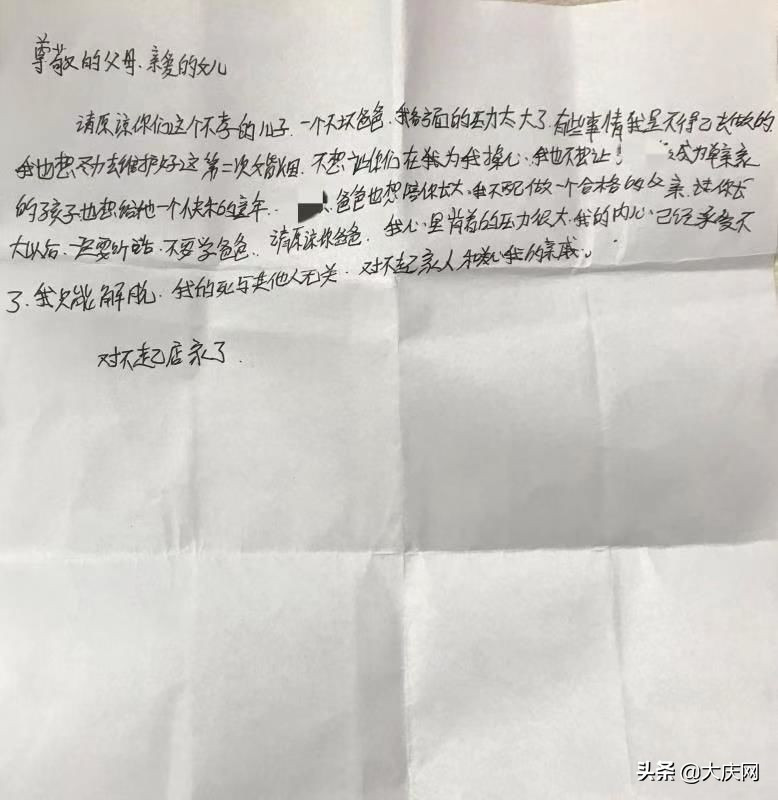 尊敬的父母、亲爱的女儿
请原谅你们这个不孝的儿子,一个不好爸爸,我各方面的压力太大了,有些事情我是不得已去做的
我也想尽力去维护好这第二次婚姻,不想让你们在我为我操心,我也不想让 成为单亲家
的孩子也想给他一个快乐的童年. 爸爸也想陪你长大,我不配做一个合格的父亲,让你长
大以后,一定要听话,不要学爸爸,请原谅你爸爸,我心里背着的压力很大,我的内心已经承受不
了,我只能解脱,我的死与其他人无关,对不起家人和关心我的亲戚.
对不起店家了.
头条 @大庆网